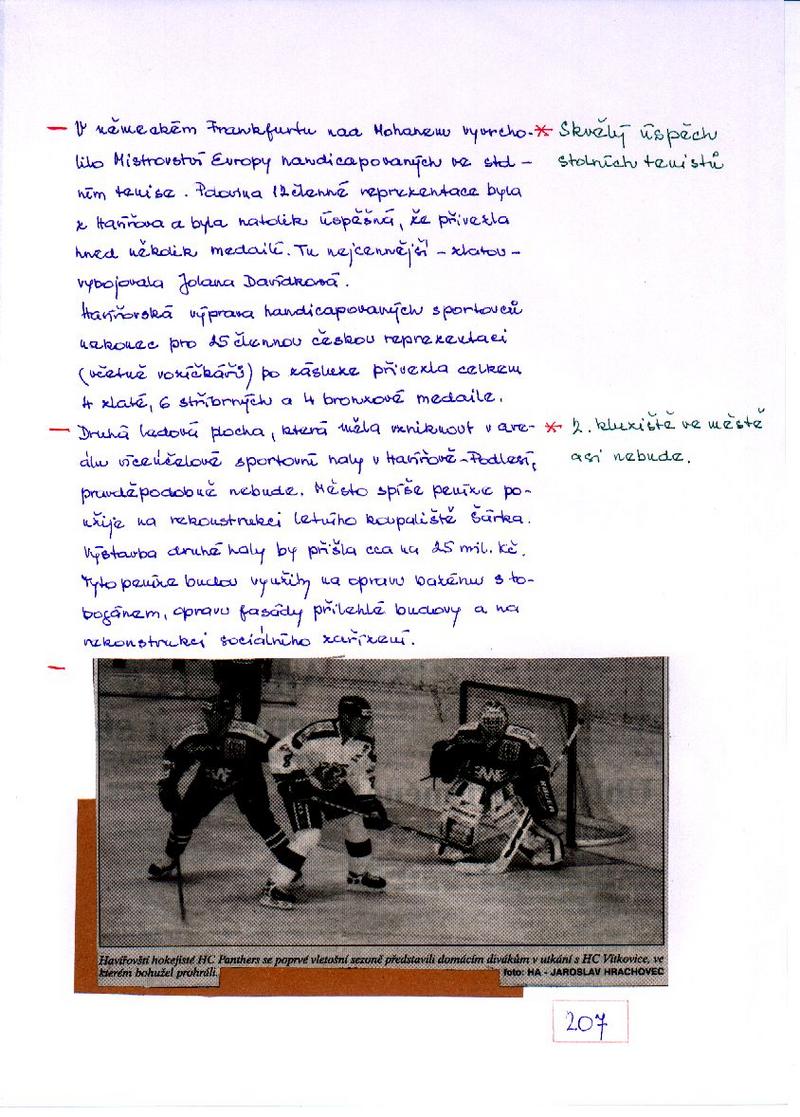 – V německém Frankfurtu nad Mohanem vyvrcho-
lilo Mistrovství Evropy handicapovaných ve stol-
ním tenise. Polovina 12 členné reprezentace byla
z Havířova a byla natolik úspěšná, že přivezla
hned několik medailí. Tu nejcennější – zlatou –
vybojovala Jolana Davídková.
Havířovská výprava handicapovaných sportovců
nakonec pro 25 člennou českou reprezentaci
(včetně vozíčkářů) po zásluze přivezla celkem
4 zlaté, 6 stříbrných a 4 bronzové medaile.
* Skvělý úspěch
stolních tenistů
– Druhá ledová plocha, která měla vzniknout v are-
álu víceúčelové sportovní haly v Havířově-Podlesí,
pravděpodobně nebude. Město spíše peníze po-
užije na rekonstrukci letního koupaliště Šárka.
Výstavba druhé haly by přišla cca na 25 mil. Kč.
Tyto peníze budou využity na opravu bazénu s to-
bogánem, opravu fasády přilehlé budovy a na
rekonstrukci sociálního zařízení.
* 2. kluziště ve městě
asi nebude.
–
Havířovští hokejisté HC Panthers se poprvé vletošní sezoně představili domácím divákům v utkání s HC Vítkovice, ve
kterém bohužel prohráli.
foto: HA - JAROSLAV HRACHOVEC
207